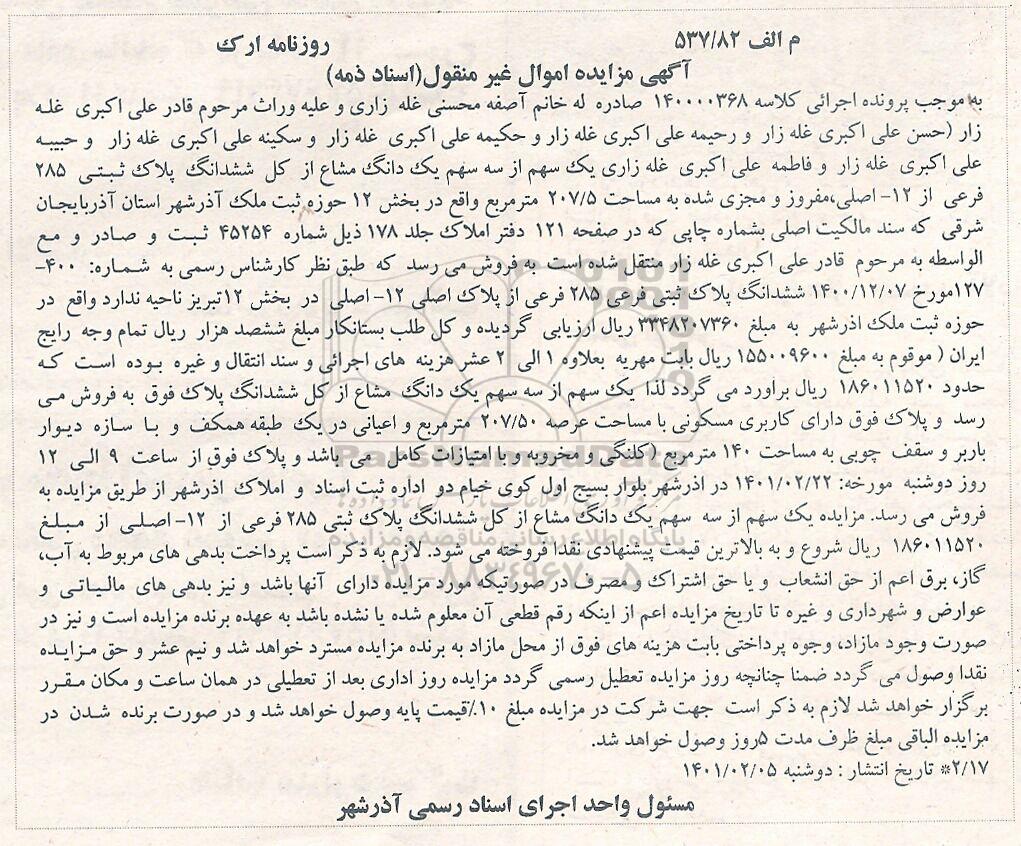 م الف ۵۳۷/۸۲
روزنامه ارک
آگهی مزایده اموال غیر منقول(اسناد ذمه)
به موجب پرونده اجرائی کلاسه ۱۴۰۰۰۰۳۶۸ صادره له خانم آصفه محسنی غله زاری و علیه وراث مرحوم قادر علی اکبری غله
زار (حسن علی اکبری غله زار و رحیمه علی اکبری غله زار و حکیمه علی اکبری غله زار و سکینه علی اکبری غله زار و حبیبه
علی اکبری غله زار و فاطمه علی اکبری غله زاری یک سهم از سه سهم یک دانگ مشاع از کل ششدانگ پلاک ثبتی ۲۸۵
فرعی از ۱۲- اصلی،مفروز و مجزی شده به مساحت ۲۰۷/۵ مترمربع واقع در بخش ۱۲ حوزه ثبت ملک آذرشهر استان آذربایجان
شرقی که سند مالکیت اصلی بشماره چاپی که در صفحه ۱۲۱ دفتر املاک جلد ۱۷۸ ذیل شماره ۴۵۲۵۴ ثبت و صادر و مع
الواسطه به مرحوم قادر علی اکبری غله زار منتقل شده است به فروش می رسد که طبق نظر کارشناس رسمی به شماره: ۴۰۰-
۱۲۷مورخ ۱۴۰۰/۱۲/۰۷ ششدانگ پلاک ثبتی فرعی ۲۸۵ فرعی از پلاک اصلی ۱۲- اصلی در بخش ۱۲تبریز ناحیه ندارد واقع در
حوزه ثبت ملک اذرشهر به مبلغ ۳۳۴۸۲۰۷۳۶۰ ریال ارزیابی گردیده و کل طلب بستانکار مبلغ ششصد هزار ریال تمام وجه رایج
ایران ( موقوم به مبلغ ۱۵۵۰۰۹۶۰۰ ریال بابت مهریه بعلاوه ۱ الی ۲ عشر هزینه های اجرائی و سند انتقال و غیره بوده است که
حدود ۱۸۶۰۱۱۵۲۰ ریال براورد می گردد لذا یک سهم از سه سهم یک دانگ مشاع از کل ششدانگ پلاک فوق به فروش می
رسد و پلاک فوق دارای کاربری مسکونی با مساحت عرصه ۲۰۷/۵۰ مترمربع و اعیانی در یک طبقه همکف و با سازه دیوار
باربر و سقف چوبی به مساحت ۱۴۰ مترمربع (کلنگی و مخروبه و با امتیازات کامل می باشد و پلاک فوق از ساعت ۹ الی ۱۲
روز دوشنبه مورخه: ۱۴۰۱/۰۲/۲۲ در اذرشهر بلوار بسیج اول کوی خیام دو اداره ثبت اسناد و املاک اذرشهر از طریق مزایده به
فروش می رسد. مزایده یک سهم از سه سهم یک دانگ مشاع از کل ششدانگ پلاک ثبتی ۲۸۵ فرعی از ۱۲- اصلی از مبلغ
۱۸۶۰۱۱۵۲۰ ریال شروع و به بالاترین قیمت پیشنهادی نقدا فروخته می شود. لازم به ذکر است پرداخت بدهی های مربوط به آب،
گاز، برق اعم از حق انشعاب و یا حق اشتراک و مصرف در صورتیکه مورد مزایده دارای آنها باشد و نیز بدهی های مالیاتی و
عوارض و شهرداری و غیره تا تاریخ مزایده اعم از اینکه رقم قطعی آن معلوم شده یا نشده باشد به عهده برنده مزایده است و نیز در
صورت وجود مازاد، وجوه پرداختی بابت هزینه های فوق از محل مازاد به برنده مزایده مسترد خواهد شد و نیم عشر و حق مزایده
نقدا وصول می گردد ضمنا چنانچه روز مزایده تعطیل رسمی گردد مزایده روز اداری بعد از تعطیلی در همان ساعت و مکان مقرر
برگزار خواهد شد لازم به ذکر است جهت شرکت در مزایده مبلغ ۱۰٪قیمت پایه وصول خواهد شد و در صورت برنده شدن در
مزایده الباقی مبلغ ظرف مدت ۵روز وصول خواهد شد.
۲/۱۷* تاریخ انتشار : دوشنبه ۱۴۰۱/۰۲/۰۵
مسئول واحد اجرای اسناد رسمی آذرشهر